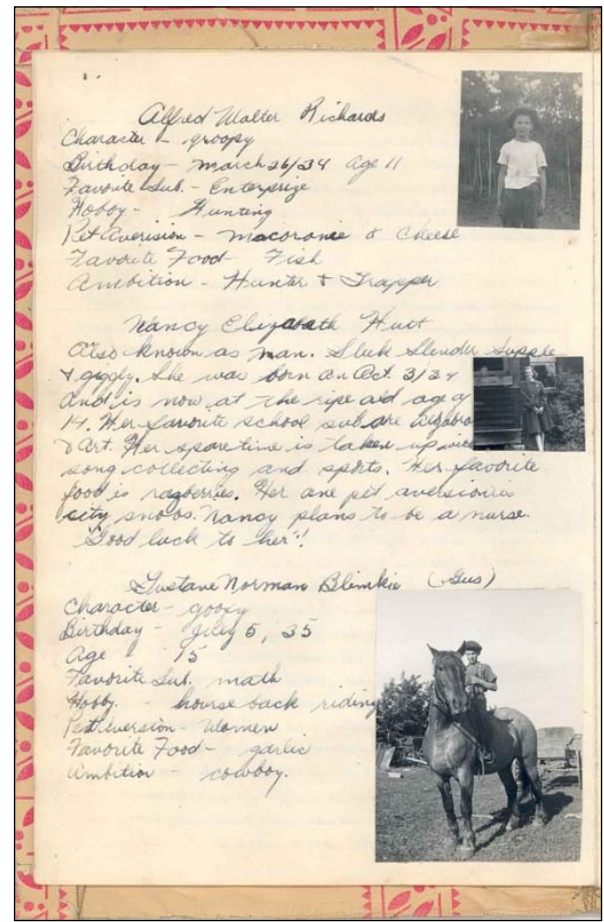 Alfred Walter Richards
Character - groopy
Birthday - March 26/34 age 11
Favorite Sub. - Enterprize
Hobby - Hunting
Pet Averision - macoronie & Cheese
Favorite Food - Fish
Ambition - Hunter & Trapper
Nancy Elizabeth Hutt
Also known as man. Sleek Slender Supple
& giggly. She was born on Oct. 3/34
and is now at the ripe old age of
14. Her favorite school sub are
& Art. Her spare time is taken up
song collecting and sports. Her favorite
food is ragberries. Her one pet aversion is
city snobs. Nancy plans to be a nurse.
"Good luck to her"!
Gustave Norman Blimkie (Gus)
Character - goofy
Birthday - July 5, 35
Age 15
Favorite Sub. math
Hobby. - hourse back riding
Pet Aversion - Women
Favorite Food - garlic
Ambition - cowboy.